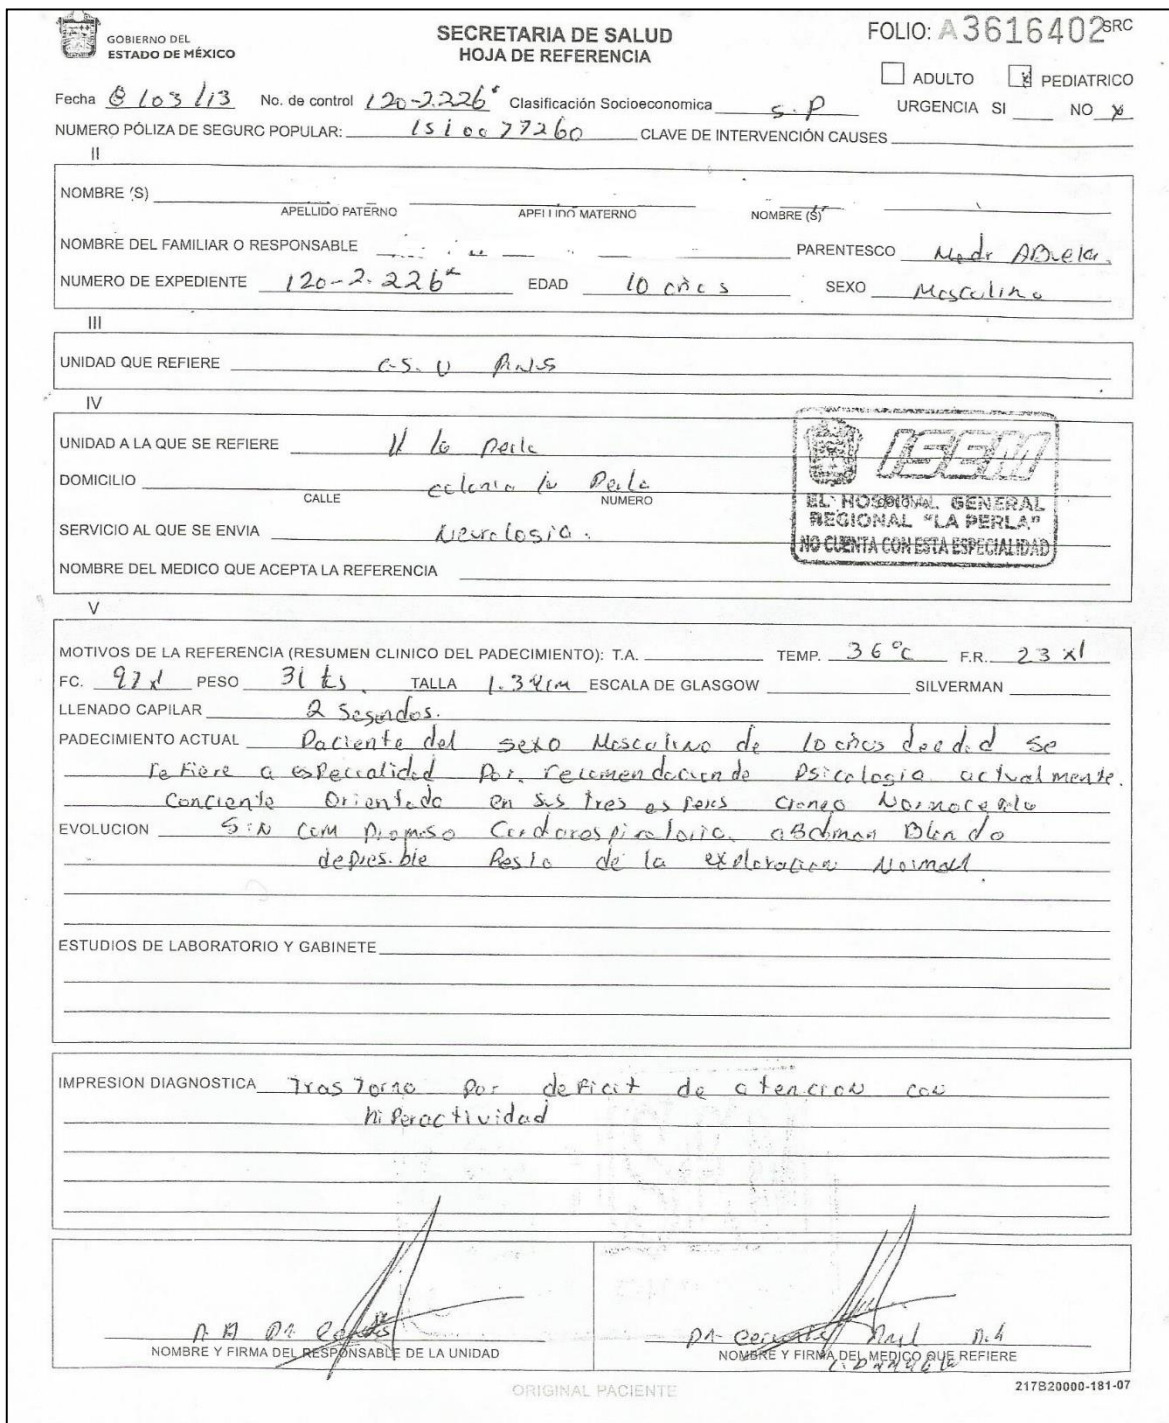 GOBIERNO DEL
ESTADO DE MÉXICO
SECRETARIA DE SALUD
HOJA DE REFERENCIA
FOLIO: A3616402 SRC
ADULTO PEDIATRICO
Fecha 8/03/13 No. de control 120-2.226 Clasificación Socioeconomica S.P URGENCIA SI NO X
NUMERO PÓLIZA DE SEGURO POPULAR: 1510077260 CLAVE DE INTERVENCIÓN CAUSES
II
NOMBRE (S)
APELLIDO PATERNO APELLIDO MATERNO NOMBRE (S)
NOMBRE DEL FAMILIAR O RESPONSABLE PARENTESCO ABuela.
NUMERO DE EXPEDIENTE 120-2.226 EDAD 10 años SEXO Masculino
III
UNIDAD QUE REFIERE C.S. U
IV
UNIDAD A LA QUE SE REFIERE H la Perla
DOMICILIO colonia la Perla
CALLE NUMERO
SERVICIO AL QUE SE ENVIA Neurologia.
NOMBRE DEL MEDICO QUE ACEPTA LA REFERENCIA
ISEM
EL HOSPITAL GENERAL
REGIONAL "LA PERLA"
NO CUENTA CON ESTA ESPECIALIDAD
V
MOTIVOS DE LA REFERENCIA (RESUMEN CLINICO DEL PADECIMIENTO): T.A. TEMP. 36°C F.R. 23 x1
FC. 97x1 PESO 31 ks. TALLA 1.34cm ESCALA DE GLASGOW SILVERMAN
LLENADO CAPILAR 2 Segundos.
PADECIMIENTO ACTUAL Paciente del sexo Masculino de 10 años de edad se
refiere a especialidad Por. recomendacion de Psicologia actualmente.
Conciente Orientado en sus tres craneo Normocefalo
EVOLUCION SiN compromiso Cardiorespiratorio. aBdomen Blando
depresible Resto de la exploracion Normal.
ESTUDIOS DE LABORATORIO Y GABINETE
IMPRESION DIAGNOSTICA Trastorno por deficit de atencion con
hiperactividad
NOMBRE Y FIRMA DEL RESPONSABLE DE LA UNIDAD
NOMBRE Y FIRMA DEL MEDICO QUE REFIERE
ORIGINAL PACIENTE
217B20000-181-07